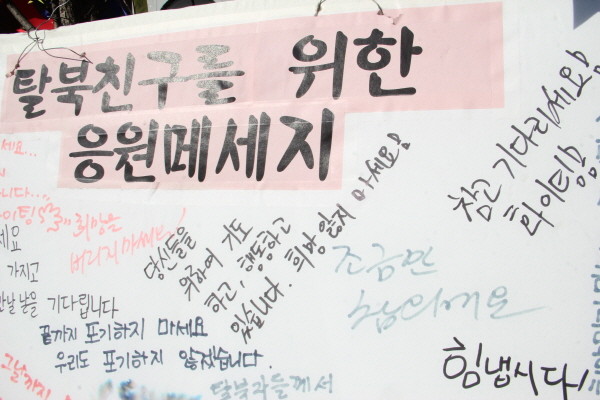 탈북친구를 위한
응원메세지
세요...
니다...
파이팅
희망을
버리지마세요!
세요
가지고
만날 날을 기다립니다
끝까지 포기하지 마세요
우리도 포기하지 않겠습니다.
그날까지
당신들을
위하여 기도
하고, 행동하고
있습니다. 희망 잃지 마세요!
조금만
참고 기다리세요!
화이팅!
힘냅시다!
탈북자들께서